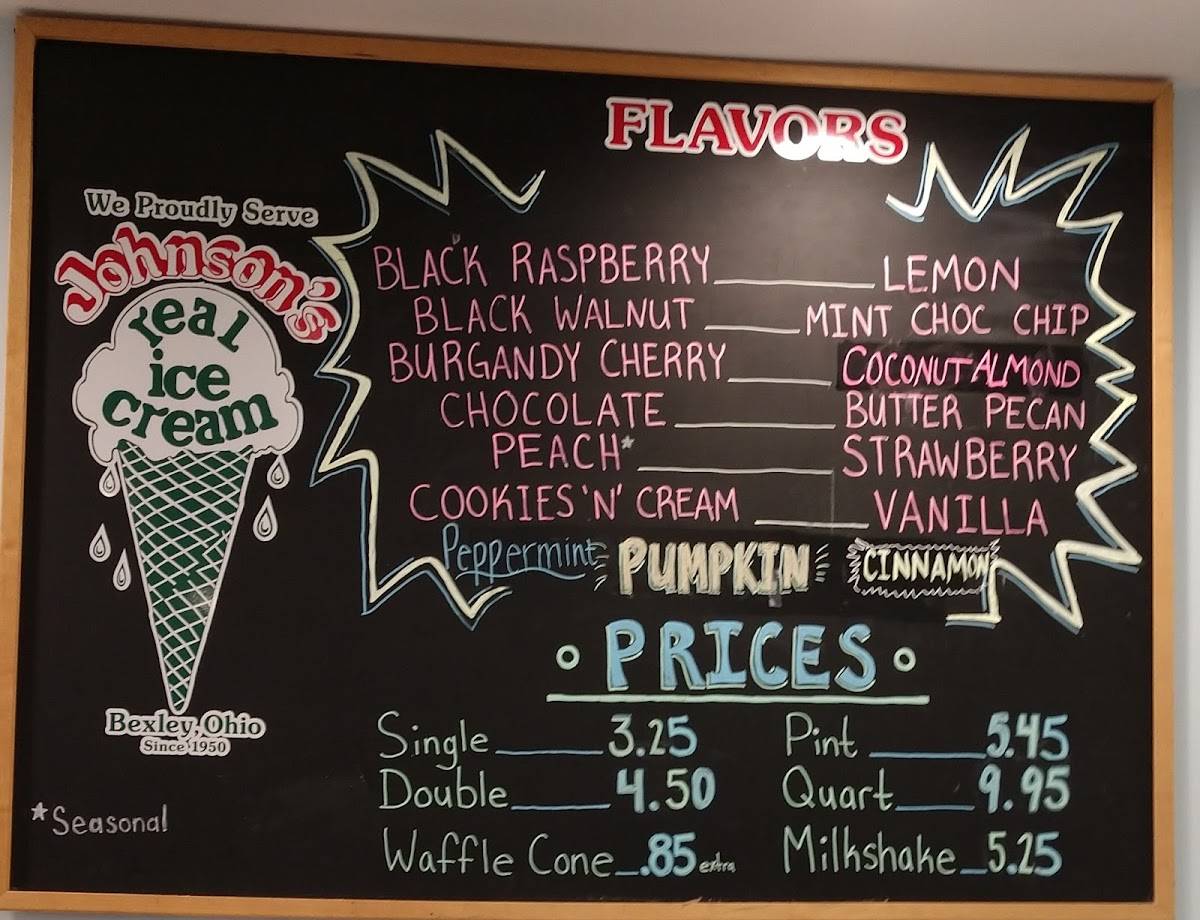 FLAVORS
We Proudly Serve
Johnson's
real
ice
cream
Bexley, Ohio
Since 1950
*Seasonal
BLACK RASPBERRY LEMON
BLACK WALNUT MINT CHOC CHIP
BURGANDY CHERRY COCONUT ALMOND
CHOCOLATE BUTTER PECAN
PEACH* STRAWBERRY
COOKIES 'N' CREAM VANILLA
Peppermint PUMPKIN CINNAMON
PRICES
Single 3.25 Pint 5.45
Double 4.50 Quart 9.95
Waffle Cone .85 extra Milkshake 5.25